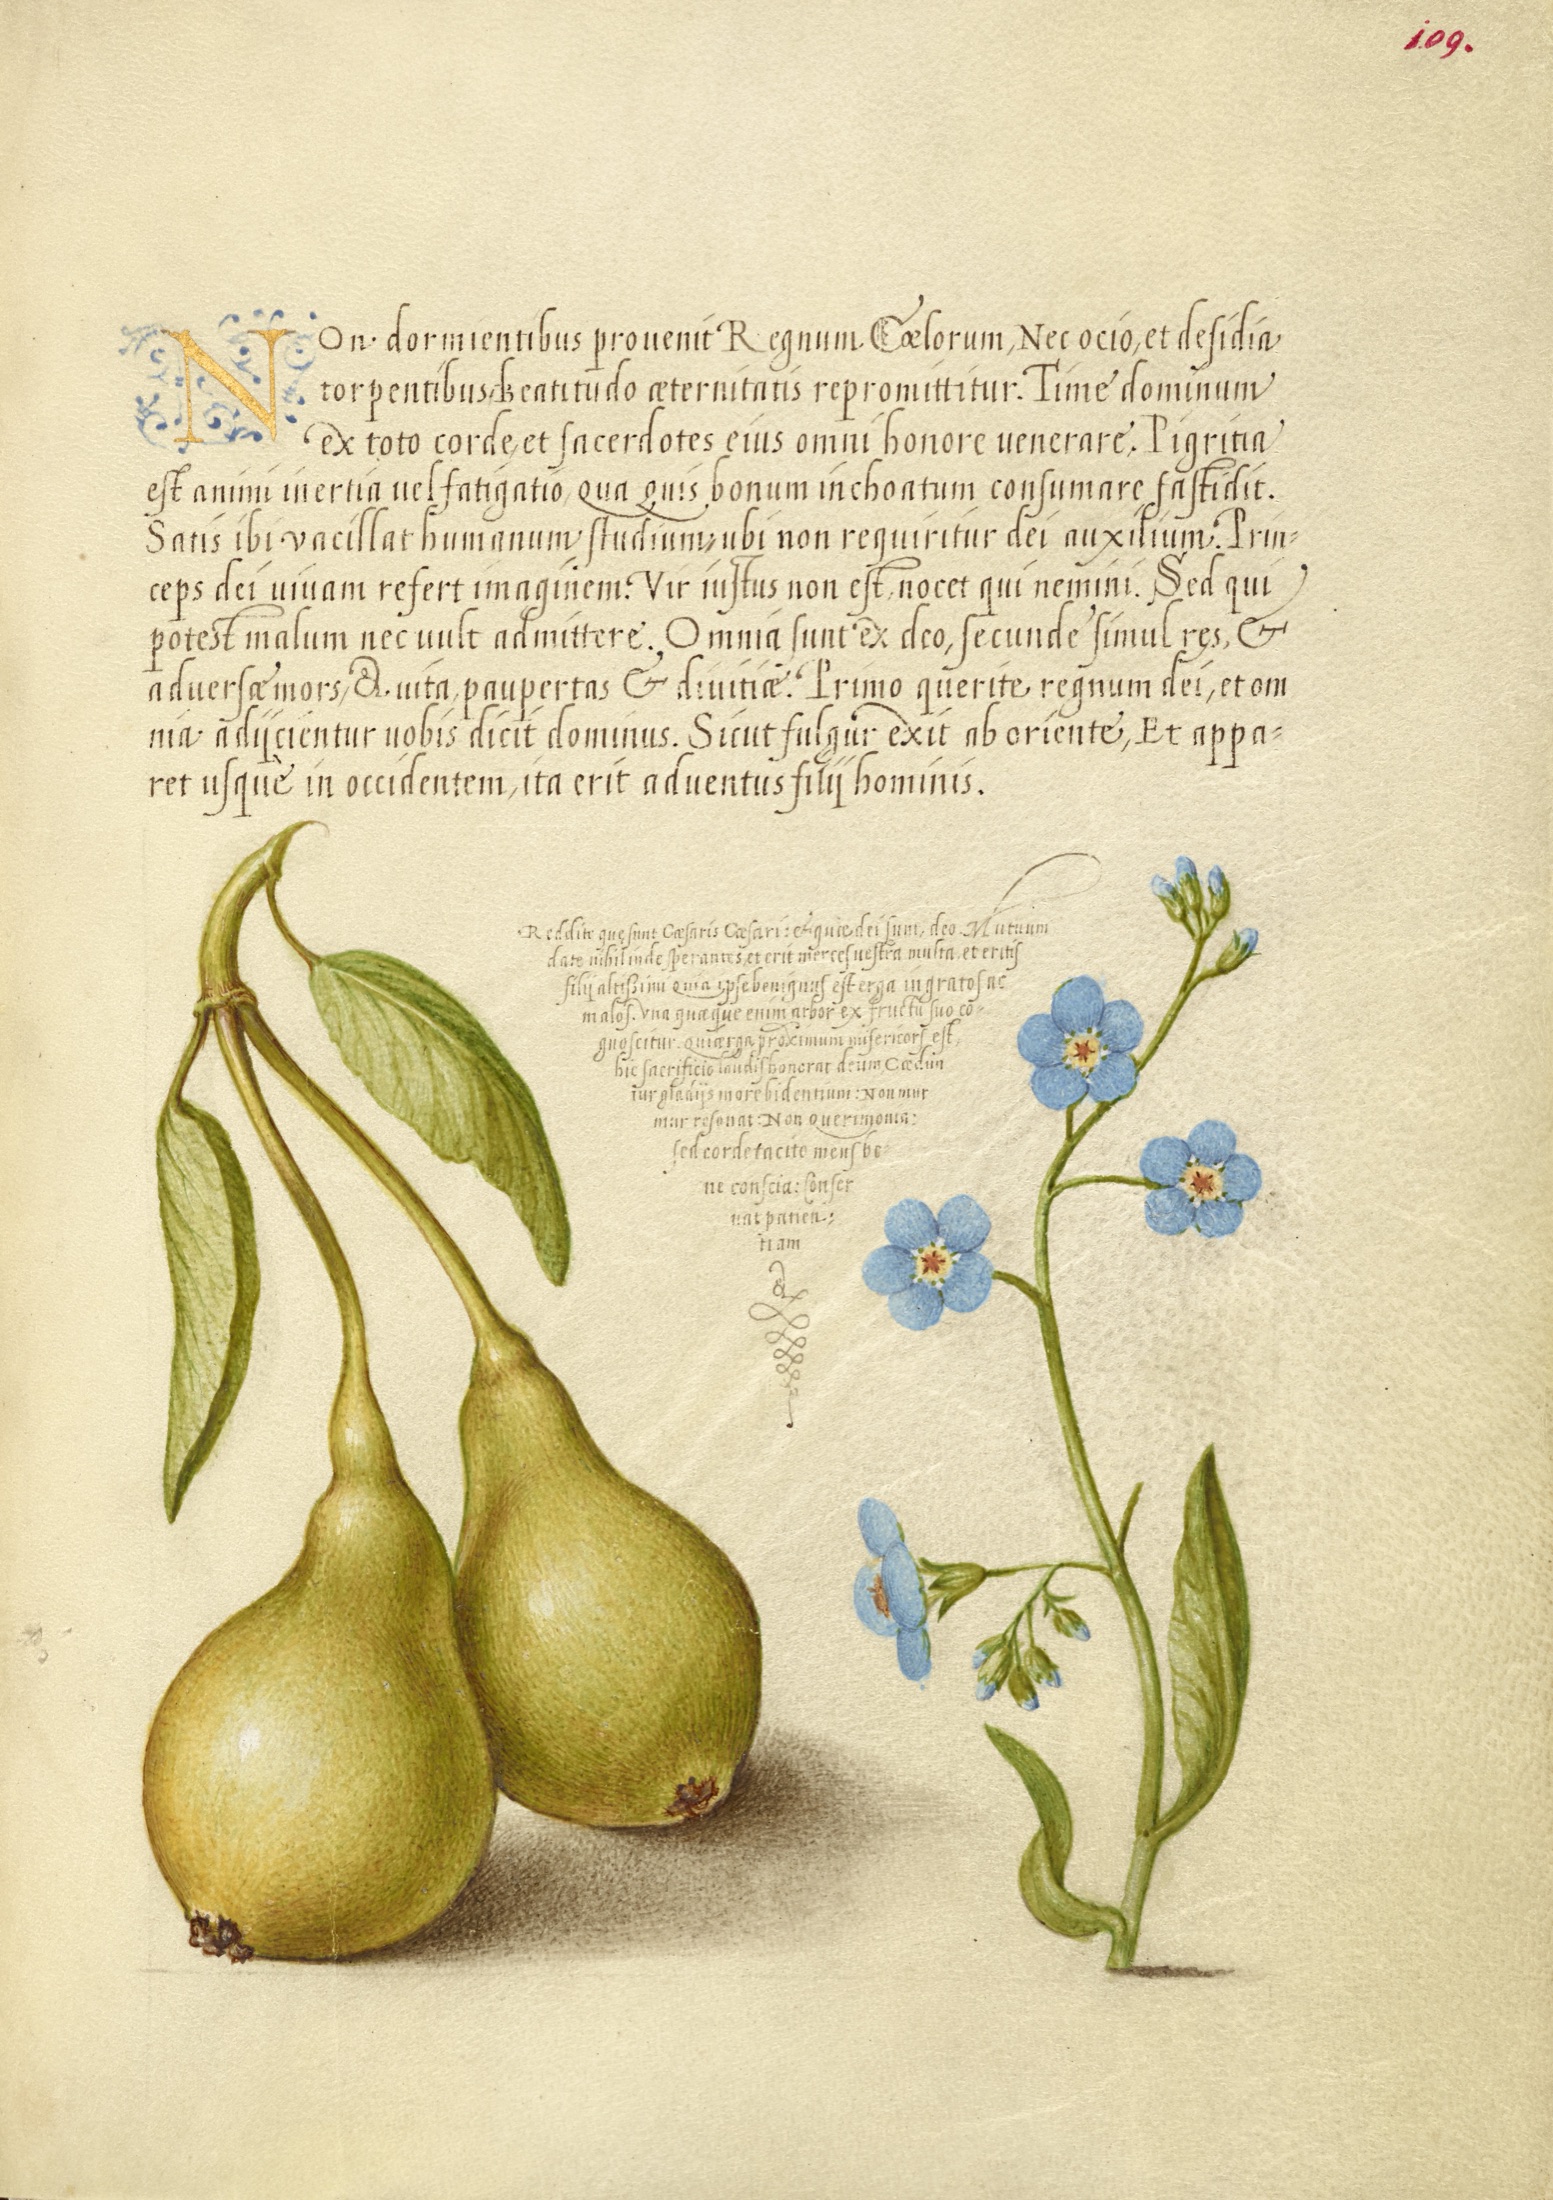 109.
NOn dormientibus prouenit Regnum Cœlorum, Nec ocio, et desidia
torpentibus beatitudo æternitatis repromittitur. Time dominum
ex toto corde, et sacerdotes eius omni honore uenerare. Pigritia
est animi inertia uel fatigatio, qua quis bonum inchoatum consumare fastidit.
Satis ibi vacillat humanum studium, ubi non requiritur dei auxilium. Prin-
ceps dei uiuam refert imaginem. Vir iustus non est, nocet qui nemini. Sed qui
potest malum nec uult admittere. Omnia sunt ex deo, secunde simul res, &
adversæ mors, & uita, paupertas & diuitiæ. Primo querite regnum dei, et om
nia adijcientur uobis dicit dominus. Sicut fulgur exit ab oriente, Et appa-
ret usque in occidentem, ita erit aduentus filij hominis.
Reddite que sunt Cæsaris Cæsari: et quæ dei sunt, deo. Mutuum
date nihil inde sperantes, et erit merces uestra multa, et eritis
filij altissimi quia ipse benignus est erga ingratos ac
malos. Vna quæque enim arbor ex fructu suo co-
gnoscitur. qui erga proximum misericors est,
hic sacrificio laudis honorat deum, Cædun
tur gladijs more bidentium: Non mur
mur resonat: Non querimonia:
sed corde tacito mens be-
ne conscia: Conser
uat patien-
tiam